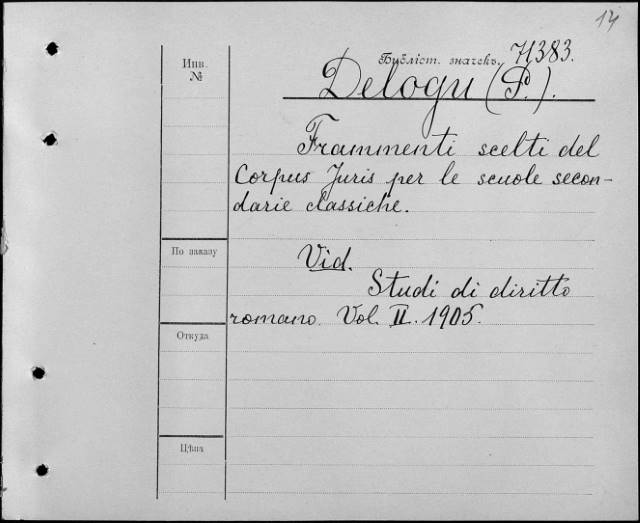 14
Инв.
№
Библіот. значекъ. 71383.
Delogu (P.).
Frammenti scelti del
Corpus Juris per le scuole secon-
darie classiche.
По заказу
Vid.
Studi di diritto
romano. Vol. II. 1905.
Откуда
Цѣна